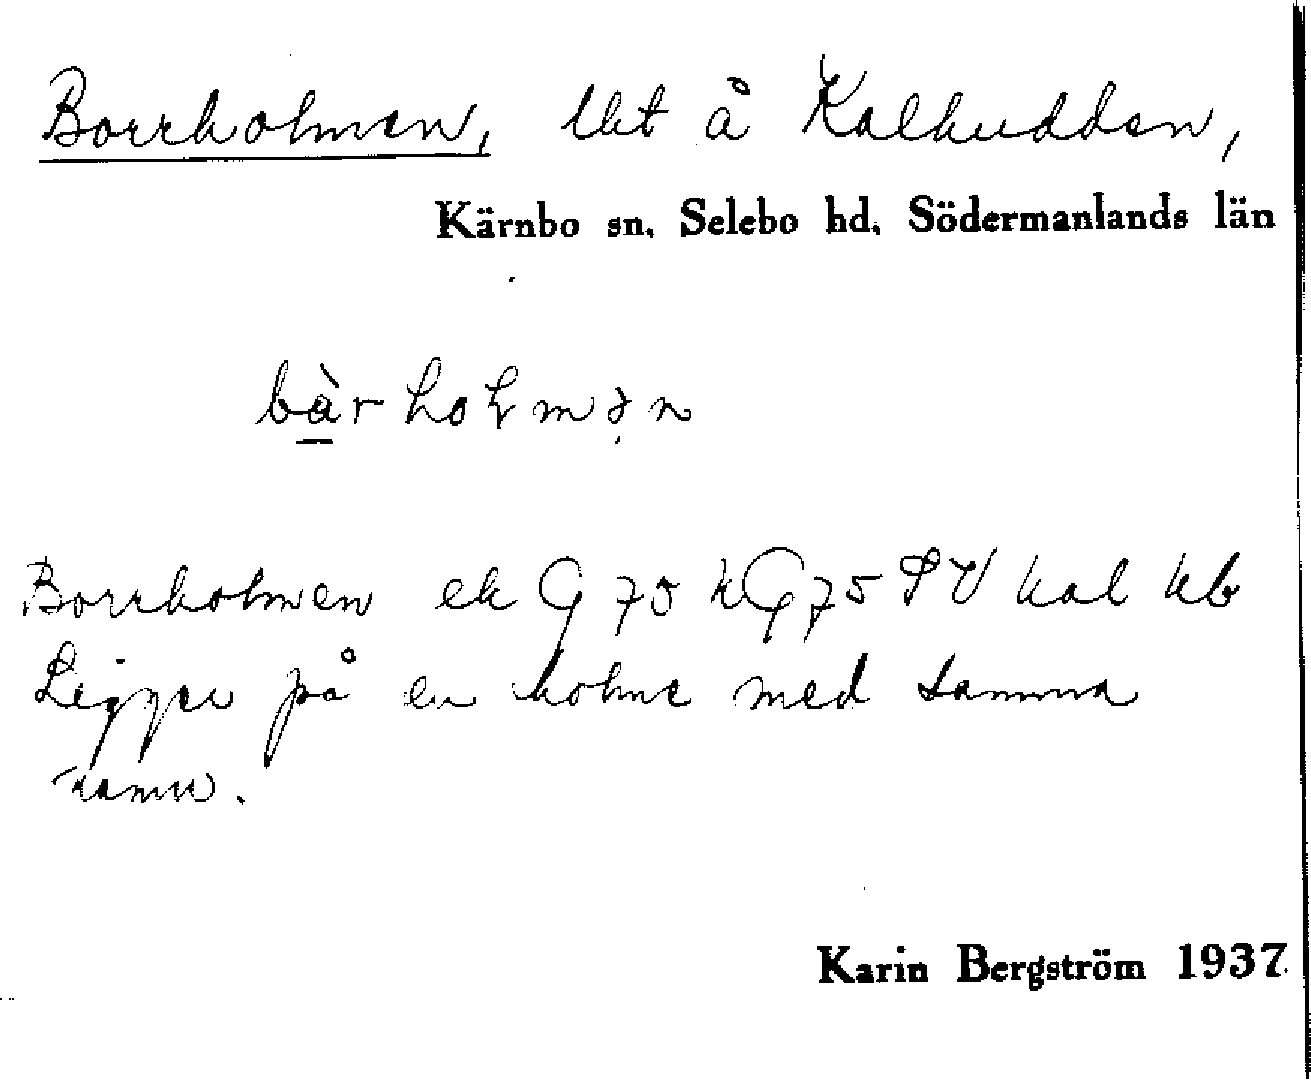 Borrholmen, lht å Kalkudden,
Kärnbo sn. Selebo hd. Södermanlands län
bàrholmən
Borrholmen ek G 75 kG 75 SV kal kb
Ligger på en holme med samma
namn.
Karin Bergström 1937